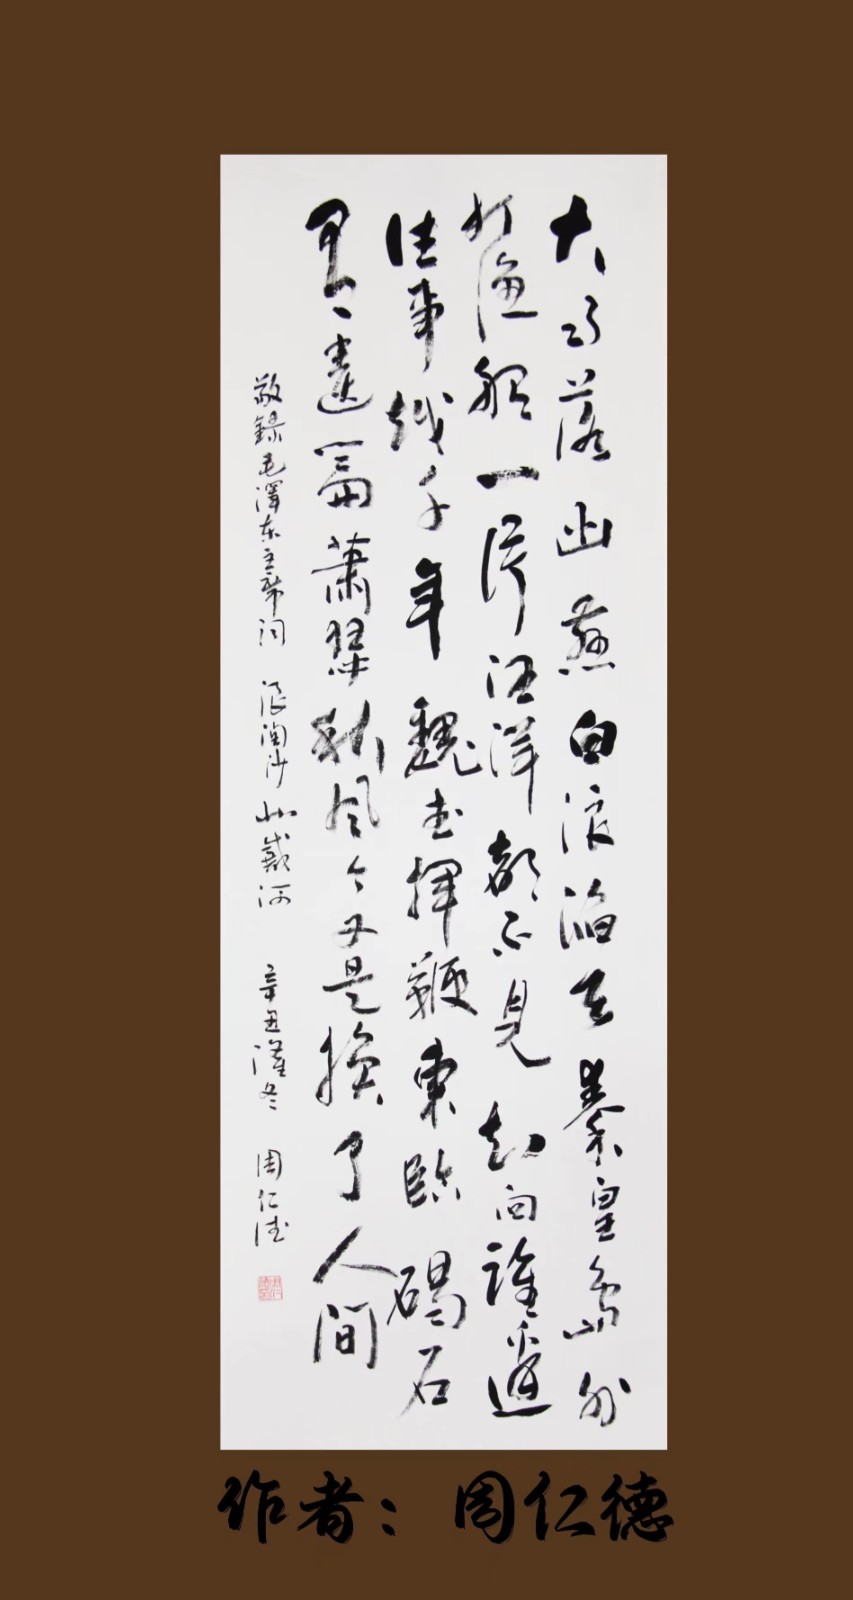 大雨落幽燕白浪滔天秦皇島外
打漁船一片汪洋都不見知向誰邊
往事越千年魏武揮鞭東臨碣石
有遺篇蕭瑟秋風今又是換了人間
敬錄毛澤东主席词 浪淘沙 北戴河 辛丑冬 周仁德
作者：周仁德